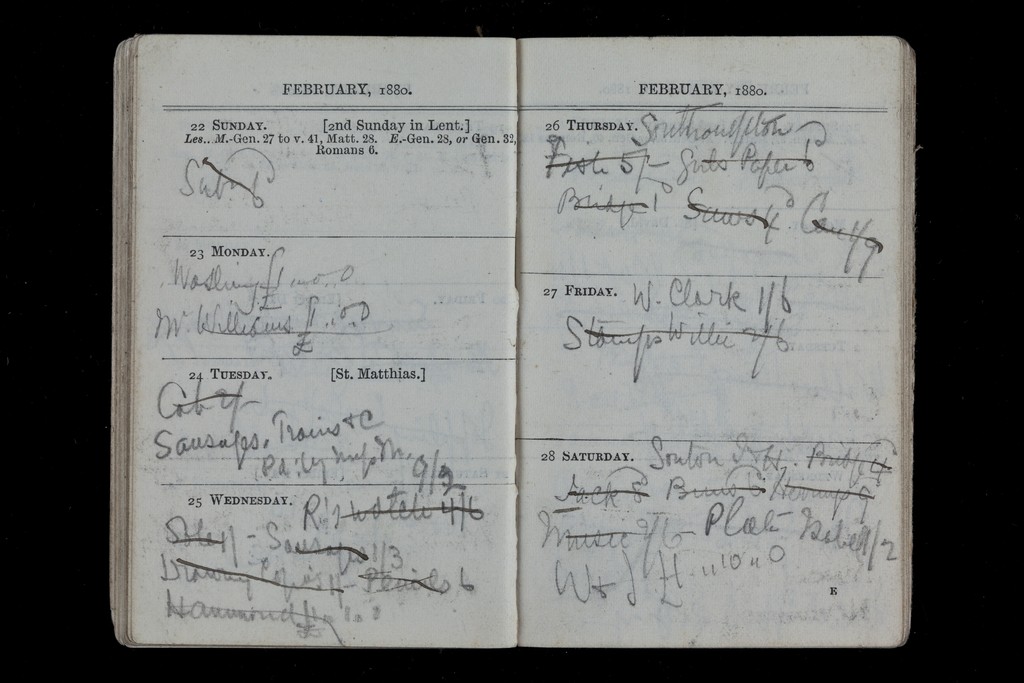 FEBRUARY, 1880.
22 SUNDAY. [2nd Sunday in Lent.]
Les.. M.-Gen. 27 to v. 41, Matt. 28. E.-Gen. 28, or Gen. 32,
Romans 6.
23 MONDAY.
Washing £1..0..0
Mr. Williams £1..0..0
24 TUESDAY. [St. Matthias.]
Cab 2/-
Sausages. Trains &c
Pd. by 9/2
25 WEDNESDAY. R's watch 4/6
Sole 1/- Sausages 1/3
Drawing Copies 1/- Pencils 6
Hammond
FEBRUARY, 1880.
26 THURSDAY. Southampton
Fish 5/- Girls Paper 6
Bridge 1 4 1/9
27 FRIDAY. W. Clark 1/6
Stamps Willie 2/6
28 SATURDAY. Bridge 4
Jack 6 Buns 6
Music 2/6 -
W & J £ " 10 " 0
E